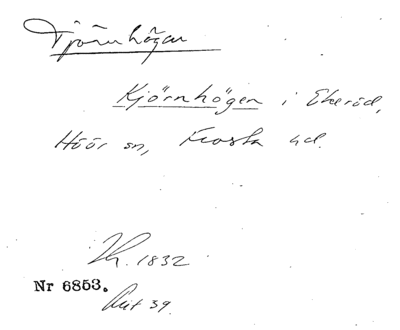 Tjörnhögar
Kjörnhögen i Ekeröd,
Höör sn, Frosta hd.
1832
Nr 6853.
39.